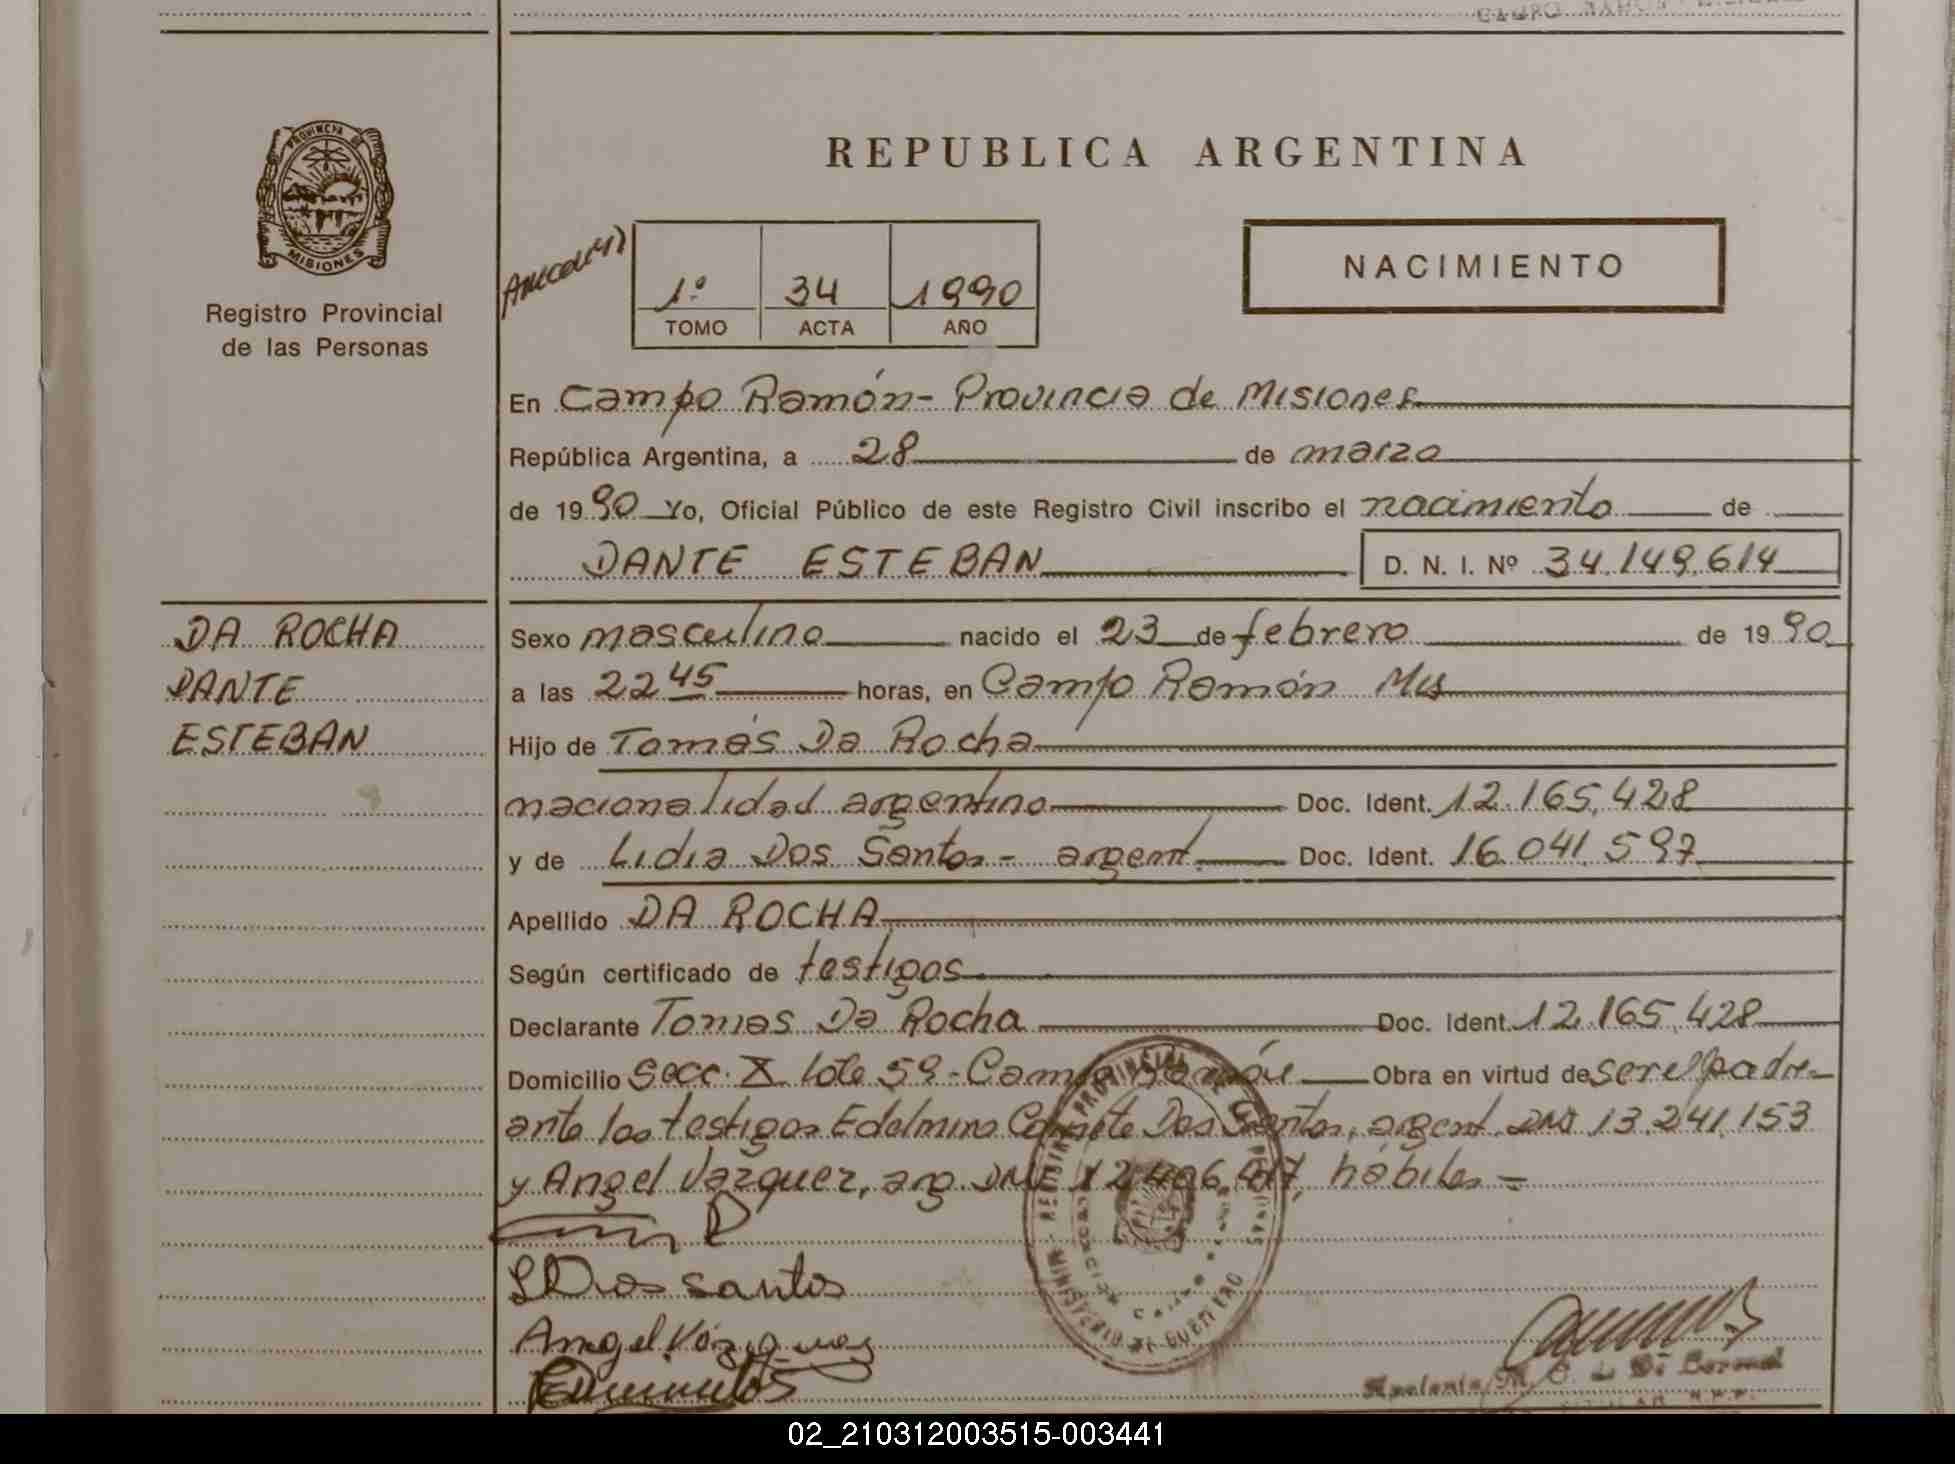 REPUBLICA ARGENTINA
PROVINCIA DE
MISIONES
Registro Provincial
de las Personas
1º 34 1990
TOMO ACTA AÑO
NACIMIENTO
En Campo Ramón - Provincia de Misiones
República Argentina, a 28 de marzo
de 1990 Yo, Oficial Público de este Registro Civil inscribo el nacimiento de
DANTE ESTEBAN D. N. I. Nº 34.149.614
DA ROCHA
DANTE
ESTEBAN
Sexo masculino nacido el 23 de febrero de 1990
a las 22 45 horas, en Campo Ramón Mis
Hijo de Tomás Da Rocha
nacionalidad argentino Doc. Ident. 12.165.428
y de Lidia Dos Santos - argent. Doc. Ident. 16.041.597
Apellido DA ROCHA
Según certificado de testigos
Declarante Tomas Da Rocha Doc. Ident. 12.165.428
Domicilio Secc. X lote 59 - Campo Ramón Obra en virtud de ser el padre
ante los testigos Edelmiro Dos Santos, argent. DNI 13.241.153
y Angel Vazquez, arg. hábiles =
LDos santos
Angel Vázquez
02_210312003515-003441